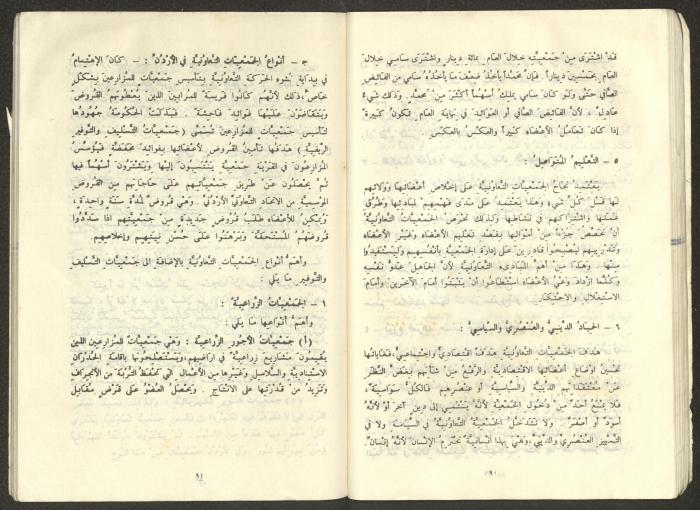 قد اشترى من جمعيته خلال العام بمائة دينار واشترى سامي خلال
العام بخمسين ديناراً. فإن محمداً يأخذ ضعف ما يأخذه سامي من الفائض
الصافي حتى ولو كان سامي يملك أسهماً أكثر من محمد. وذلك شيء
عادل، لأن الفائض الصافي أو العوائد في نهاية العام تكون كثيرة
إذا كان تعامل الأعضاء كبيراً والعكس بالعكس.
٥ - التعليم المتواصل :
يعتمد نجاح الجمعيات التعاونية على إخلاص أعضائها وولائهم
لها قبل كل شيء وهذا يعتمد على مدى فهمهم لمبادئها وطرق
عملها واشتراكهم في نشاطها ولذلك تحرص الجمعيات التعاونية
أن تخصص جزءاً من أموالها بقصد تعليم الأعضاء وغير الأعضاء
وتدريبهم ليصبحوا قادرين على إدارة الجمعية بأنفسهم وليستفيدوا
منها. وهذا من أهم المبادىء التعاونية لأن الجاهل عدو نفسه
وكلما ازداد وعي الأعضاء استطاعوا أن يثبتوا أمام الآخرين وأمام
الاستغلال والاحتكار.
٦ - الحياد الديني والعنصري والسياسي :
هدف الجمعيات التعاونية هدف اقتصادي واجتماعي، فغاياتها
تحسين أوضاع أعضائها الاقتصادية والرفع من شأنهم بغض النظر
عن معتقداتهم الدينية والسياسية أو عنصرهم فالكل سواسية،
فلا يمنع أحد من دخول الجمعية لأنه ينتمي إلى دين آخر أو لأنه
أسود أو أصفر. ولا تتدخل الجمعية التعاونية في السياسة ولا في
التمييز العنصري والديني، وهي بهذا إنسانية تحترم الإنسان لأنه إنسان.
٩٠
ج - أنواع الجمعيات التعاونية في الأردن : - كان الاهتمام
في بداية نشوء الحركة التعاونية بتأسيس جمعيات للمزارعين بشكل
خاص، ذلك لأنهم كانوا فريسة للمرابين الذين يعطونهم القروض
ويتقاضون عليها فوائد فاحشة. فبذلت الحكومة جهودها
لتأسيس جمعيات للمزارعين تسمى (جمعيات التسليف والتوفير
الريفية) هدفها تأمين القروض لأعضائها بفوائد مخفضة فيؤسس
المزارعون في القرية جمعية ينتسبون إليها ويشترون أسهماً فيها
ثم يحصلون عن طريق جمعيتهم على حاجاتهم من القروض
الموسمية من الاتحاد التعاوني الأردني. وهي قروض لمدة سنة واحدة،
ويمكن للأعضاء طلب قروض جديدة من جمعيتهم اذا سددوا
قروضهم المستحقة وبرهنوا على حسن نيتهم وإخلاصهم.
وأهم أنواع الجمعيات التعاونية بالإضافة الى جمعيات التسليف
والتوفير ما يلي :
١ - الجمعيات الزراعية :
وأهم أنواعها ما يلي :
(أ) جمعيات الأجور الزراعية : وهي جمعيات للمزارعين اللذين
يقيمون مشاريع زراعية في اراضيهم، ويستصلحونها بإقامة الجدران
الاستنادية والسلاسل وغيرها من الأعمال التي تحفظ التربة من الانجراف
وتزيد من قدرتها على الانتاج. ويحصل العضو على قرض مقابل
٩١